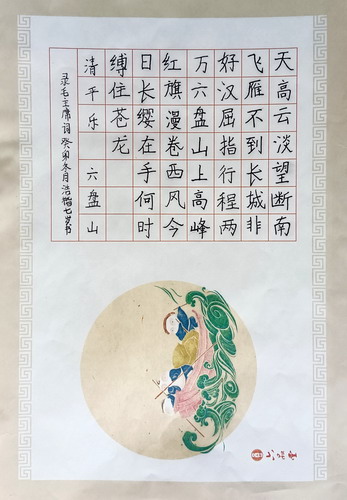 天高云淡望断南
飞雁不到长城非
好汉屈指行程两
万六盘山上高峰
红旗漫卷西风今
日长缨在手何时
缚住苍龙
清平乐 六盘山
录毛主席词 癸卯冬月 浩楷七岁书